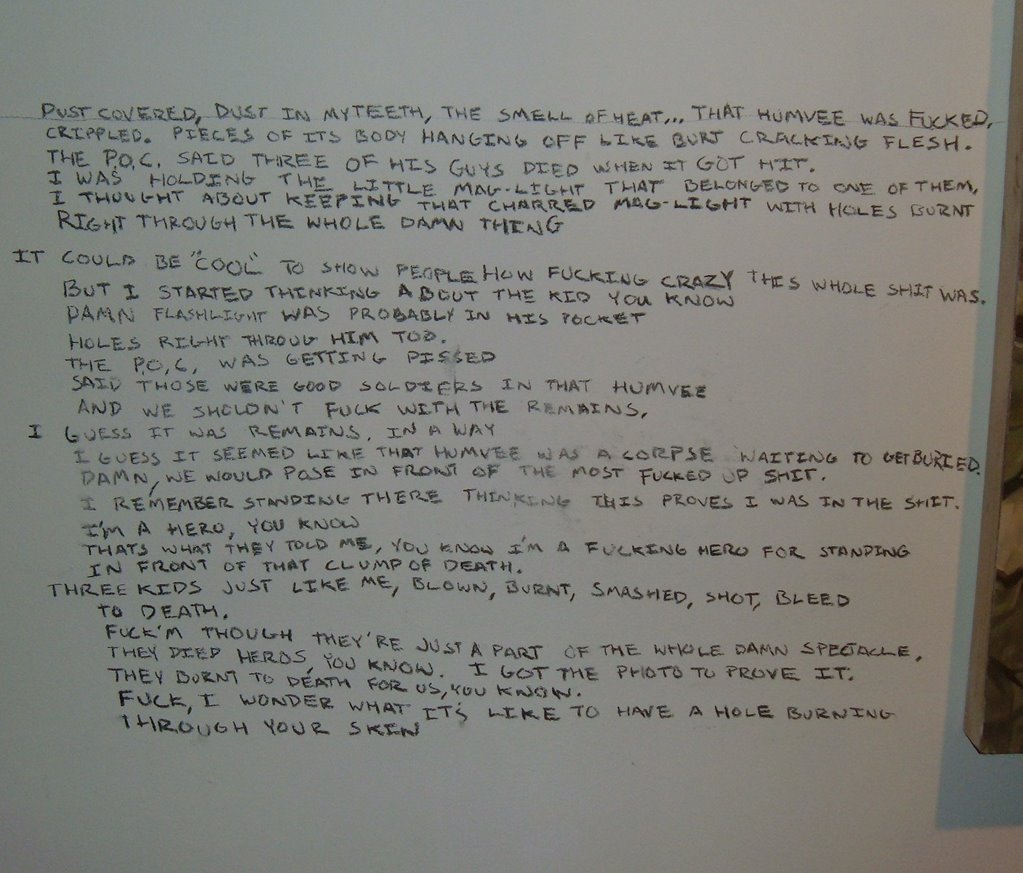 DUST COVERED, DUST IN MY TEETH, THE SMELL OF HEAT... THAT HUMVEE WAS FUCKED,
CRIPPLED. PIECES OF ITS BODY HANGING OFF LIKE BURT CRACKING FLESH.
THE P.O.C. SAID THREE OF HIS GUYS DIED WHEN IT GOT HIT.
I WAS HOLDING THE LITTLE MAG-LIGHT THAT BELONGED TO ONE OF THEM,
I THOUGHT ABOUT KEEPING THAT CHARRED MAG-LIGHT WITH HOLES BURNT
RIGHT THROUGH THE WHOLE DAMN THING
IT COULD BE "COOL" TO SHOW PEOPLE HOW FUCKING CRAZY THIS WHOLE SHIT WAS.
BUT I STARTED THINKING ABOUT THE KID YOU KNOW
DAMN FLASHLIGHT WAS PROBABLY IN HIS POCKET
HOLES RIGHT THROUG HIM TOO.
THE P.O.C. WAS GETTING PISSED
SAID THOSE WERE GOOD SOLDIERS IN THAT HUMVEE
AND WE SHOLDN'T FUCK WITH THE REMAINS,
I GUESS IT WAS REMAINS, IN A WAY
I GUESS IT SEEMED LIKE THAT HUMVEE WAS A CORPSE WAITING TO GET BURIED.
DAMN, WE WOULD POSE IN FRONT OF THE MOST FUCKED UP SHIT.
I REMEMBER STANDING THERE THINKING THIS PROVES I WAS IN THE SHIT.
I'M A HERO, YOU KNOW
THATS WHAT THEY TOLD ME, YOU KNOW I'M A FUCKING HERO FOR STANDING
IN FRONT OF THAT CLUMP OF DEATH.
THREE KIDS JUST LIKE ME, BLOWN, BURNT, SMASHED, SHOT, BLEED
TO DEATH.
FUCK'M THOUGH THEY'RE JUST A PART OF THE WHOLE DAMN SPECTACLE,
THEY DIED HEROS, YOU KNOW. I GOT THE PHOTO TO PROVE IT.
THEY BURNT TO DEATH FOR US, YOU KNOW.
FUCK, I WONDER WHAT IT'S LIKE TO HAVE A HOLE BURNING
THROUGH YOUR SKIN